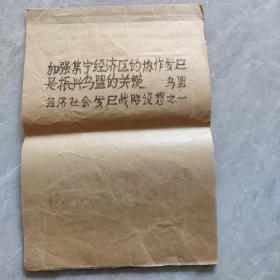 加强集宁经济区的协作发已
是振兴乌盟的关键 乌盟
经济社会发已战略设想之一